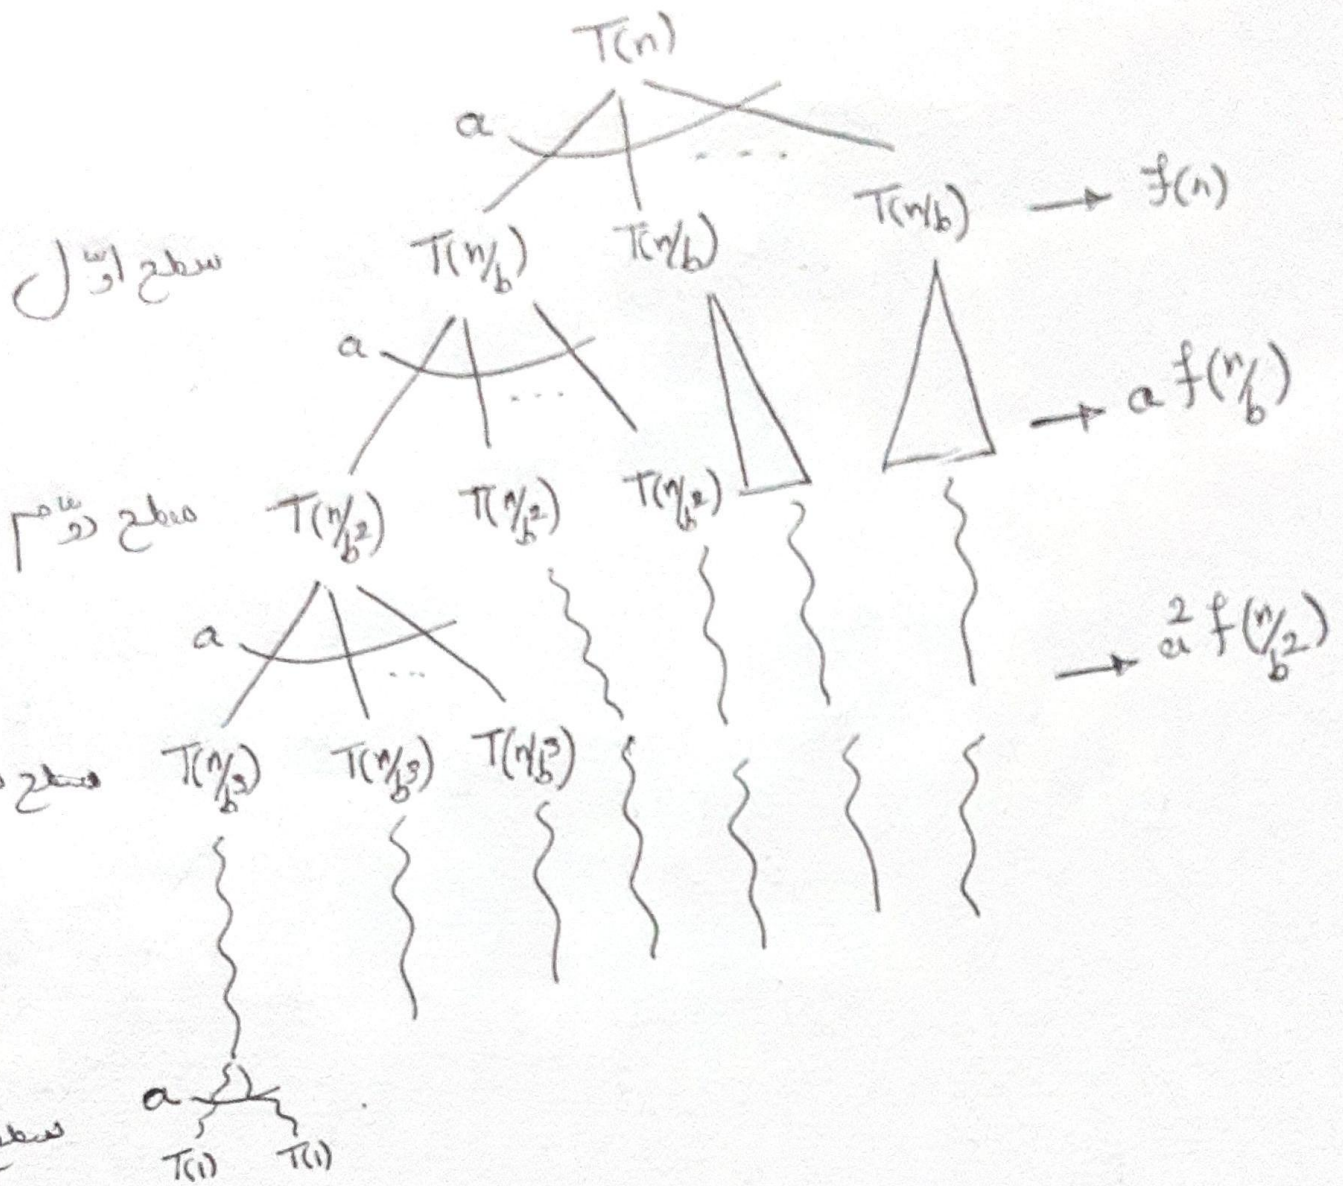 T(n)
a
....
سطح اوّل T(n/b) T(n/b) T(n/b) → f(n)
a
...
→ a f(n/b)
سطح دوّم T(n/b²) T(n/b²) T(n/b²)
a
...
→ a² f(n/b²)
سطح T(n/b³) T(n/b³) T(n/b³)
a
T(1) T(1)